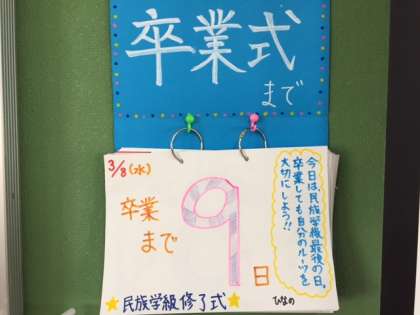 卒業式
まで
3/8(水)
卒業
まで
9
日
今日は民族学級最後の日。
卒業しても自分のルーツを
大切にしよう!!
★民族学級修了式★
ひなの